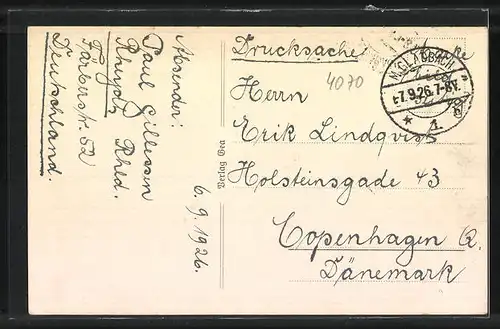 Absender:
Paul Gillessen
Rheydt Rhld.
Färberstr. 52
Deutschland.
6.9.1926.
Verlag Gea
Drucksache
4070
M.GLADBACH
-7.9.26.7-8V.
* 1.
Herrn
Erik Lindqvist
Holsteinsgade 43
Copenhagen Q.
Dänemark